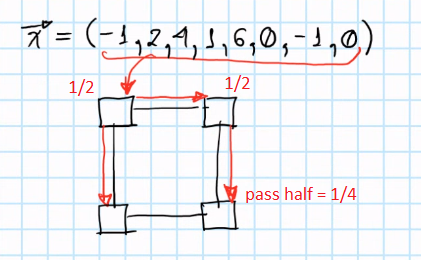 x⃗ = (-1, 2, 4, 1, 6, 0, -1, 0)
1/2
1/2
pass half = 1/4